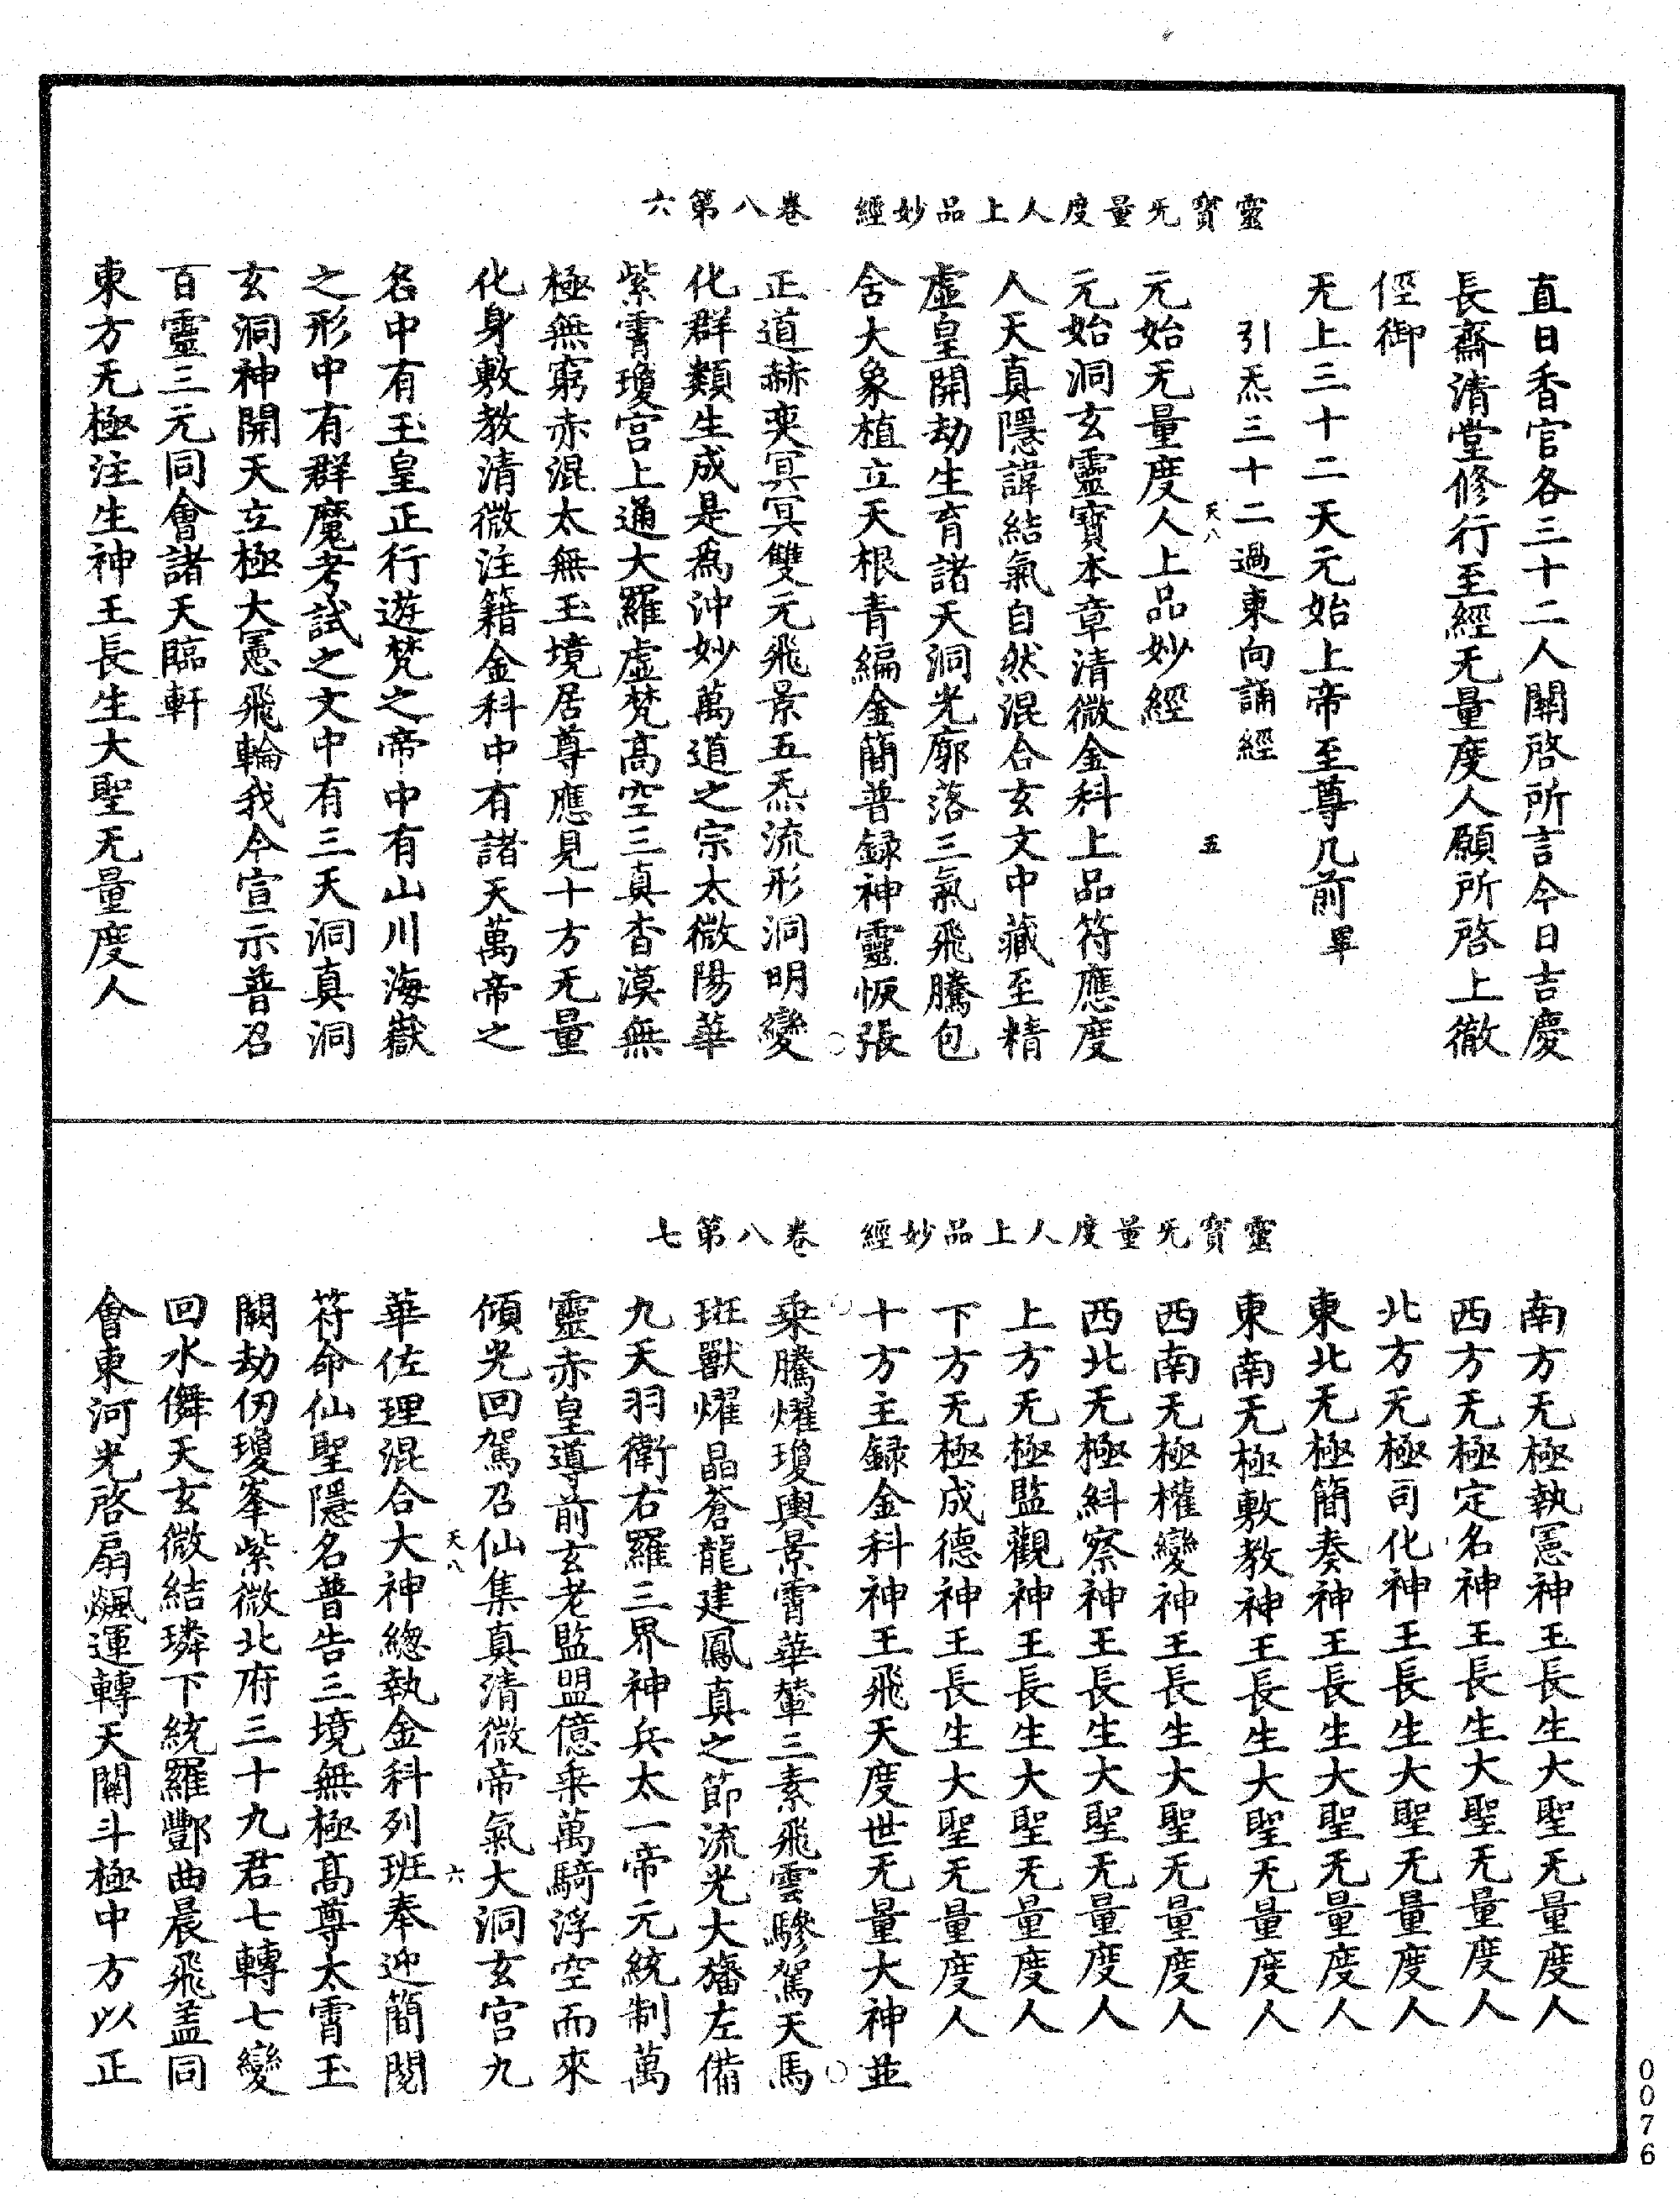 靈寳旡量度人上品妙經　卷八第六
直日香官各三十二人關啓所言今日吉慶
長齋清堂修行至經无量度人願所啓上徹
徑御
无上三十二天元始上帝至尊几前畢
引炁三十二過東向誦經
天八　五
元始无量度人上品妙經
元始洞玄靈寳本章清微金科上品符應度
人天真隱諱結氣自然混合玄文中藏至精
虛皇開劫生育諸天洞光廓落三氣飛騰包
含大象植立天根青編金簡普録神靈恢張
正道赫奕冥冥雙元飛景五炁流形洞明變
化群類生成是為沖妙萬道之宗太微陽華
紫霄瓊宮上通大羅虛梵高空三真杳漠無
極無窮赤混太無玉境居尊應見十方无量
化身敷教清微注籍金科中有諸天萬帝之
名中有玉皇正行遊梵之帝中有山川海嶽
之形中有群魔考試之文中有三天洞真洞
玄洞神開天立極大憲飛輪我今宣示普召
百靈三元同會諸天臨軒
東方无極注生神王長生大聖无量度人
靈寳旡量度人上品妙經　卷八第七
南方无極執憲神王長生大聖无量度人
西方无極定名神王長生大聖无量度人
北方无極司化神王長生大聖无量度人
東北无極簡奏神王長生大聖无量度人
東南无極敷教神王長生大聖无量度人
西南无極權變神王長生大聖无量度人
西北无極糾察神王長生大聖无量度人
上方无極監觀神王長生大聖无量度人
下方无極成德神王長生大聖无量度人
十方主録金科神王飛天度世无量大神並
乗騰燿瓊輿景霄華輦三素飛雲驂駕天馬
斑獸燿晶蒼龍建鳳真之節流光大旛左備
九天羽衛右羅三界神兵太一帝元統制萬
靈赤皇導前玄老監盟億乗萬騎浮空而來
傾光回駕召仙集真清微帝氣大洞玄宮九
天八　六
華佐理混合大神總執金科列班奉迎簡閱
符命仙聖隱名普告三境無極高尊太霄玉
闕劫仞瓊峯紫微北府三十九君七轉七變
回水儛天玄微結璘下統羅酆曲晨飛盖同
會東河光啓扇飈運轉天關斗極中方以正
0076